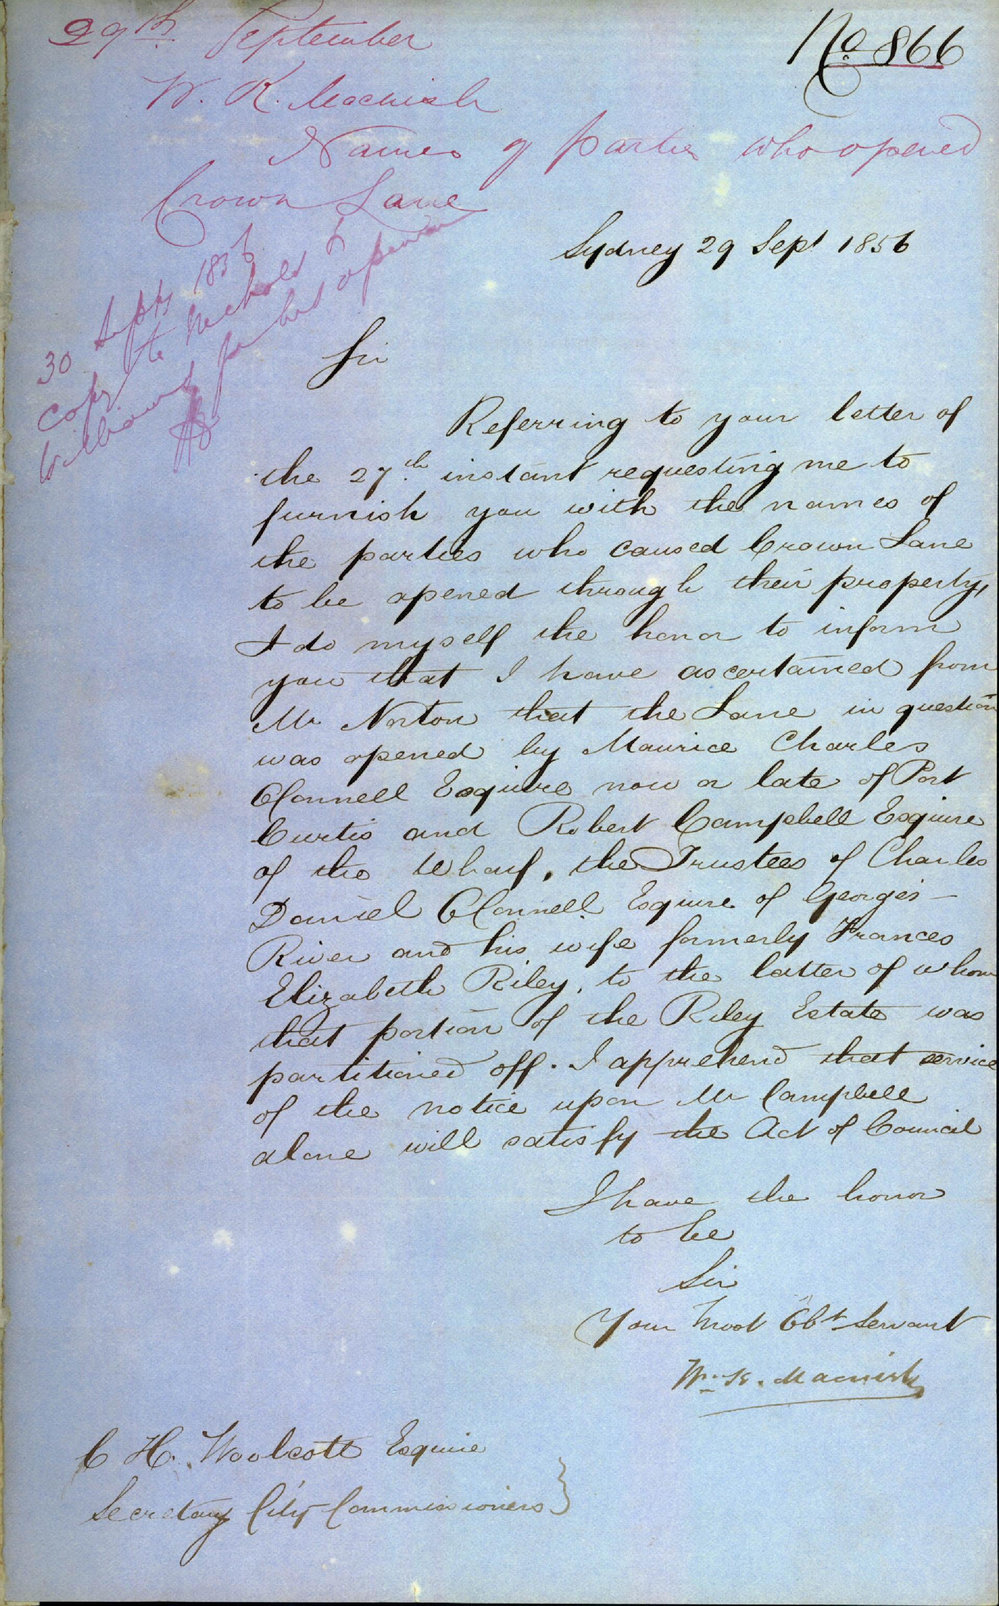 29th September
No 866
W. K. Macnish
Names of parties who opened
Crown Lane
Sydney 29 Sept 1856
30 Septr 1856
copy to Nichols &
Williams for best opinion
Sir
Referring to your letter of
the 27th instant requesting me to
furnish you with the names of
the parties who caused Crown Lane
to be opened through their property,
I do myself the honor to inform
you that I have ascertained from
Mr Norton that the Lane in question
was opened by Maurice Charles
OConnell Esquire now or late of Port
Curtis and Robert Campbell Esquire
of the Wharf, the Trustees of Charles
Daniel OConnell Esquire of Georges
River and his wife formerly Frances
Elizabeth Riley, to the latter of whom
that portion of the Riley Estate was
partitioned off. I apprehend that service
of the notice upon Mr Campbell
alone will satisfy the Act of Council
I have the honor
to be
Sir
Your Most Obt Servant
Wm K. Macnish
C H. Woolcott Esquire
Secretary City Commissioners